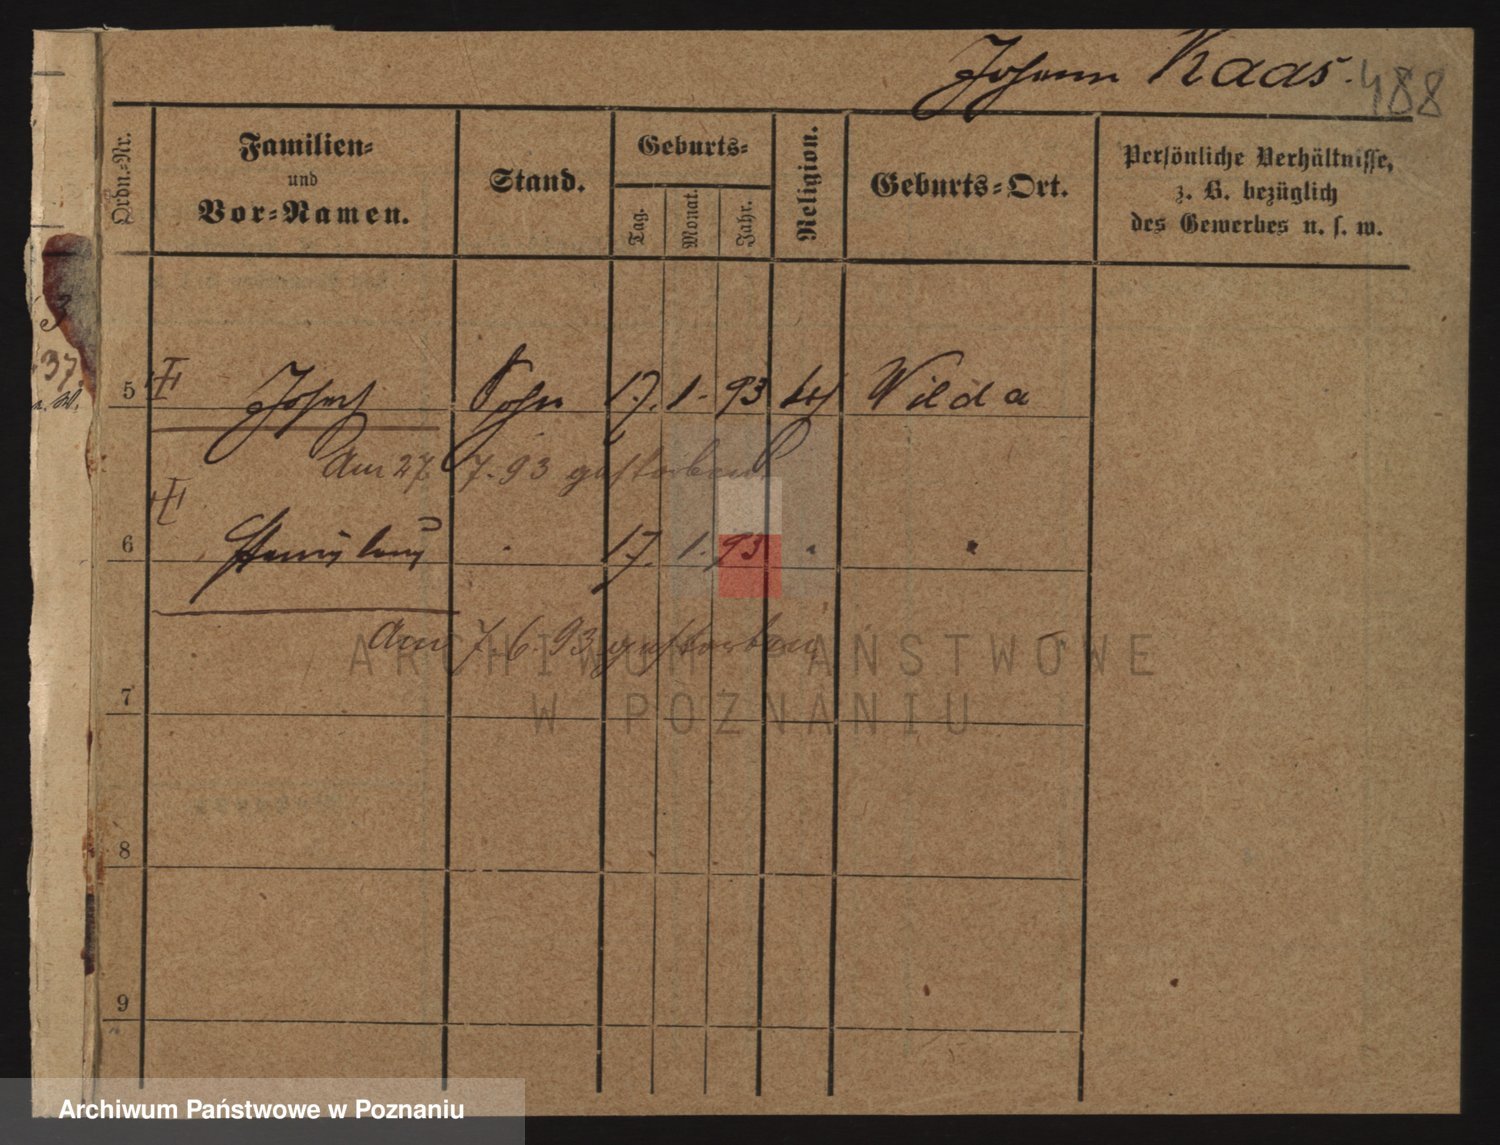 Johann Kaas.
488
Ordn.-Nr.
Familien-
und
Vor-Namen.
Stand.
Geburts-
Tag.
Monat.
Jahr.
Religion.
Geburts-Ort.
Persönliche Verhältnisse,
z. B. bezüglich
des Gewerbes u. s. w.
3
37.
u. W.
5 Josef Sohn 17. 1. 93 kth Wilda
Am 27. 7. 93 gestorben
6 Stanislaus " 17. 1. 93 " "
Am 7. 6. 93 gestorben
7
8
9
ARCHIWUM PAŃSTWOWE
W POZNANIU
Archiwum Państwowe w Poznaniu